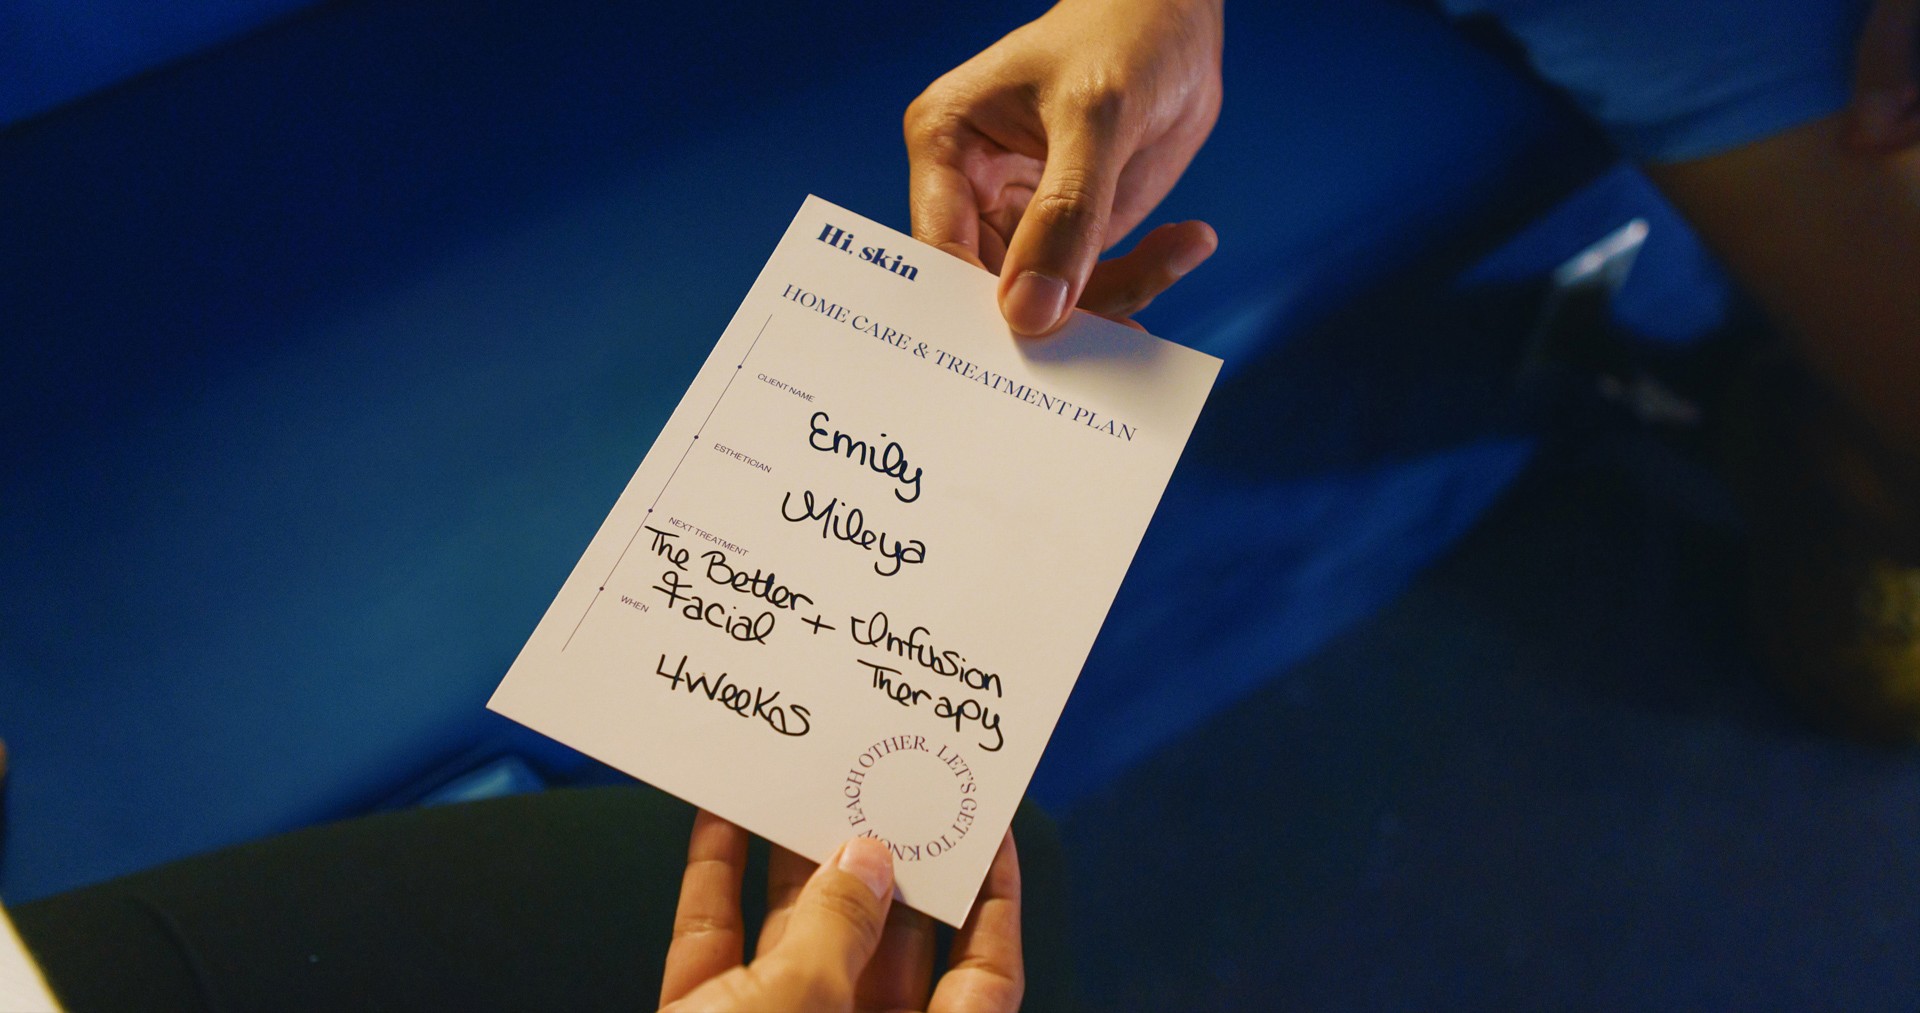 Hi, skin
HOME CARE & TREATMENT PLAN
CLIENT NAME
Emily
ESTHETICIAN
Mileya
NEXT TREATMENT
The Better + Infusion
Facial Therapy
WHEN
4 Weeks
LET'S GET TO KNOW EACH OTHER.